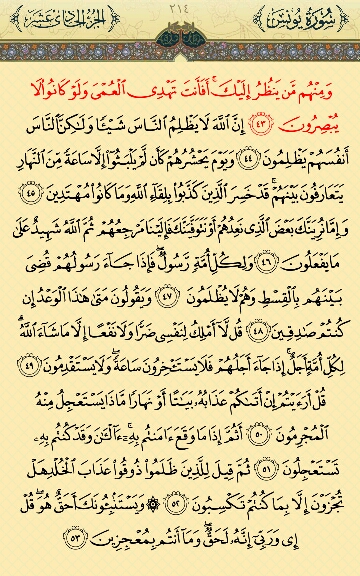 سُورَةُ يُونُسَ ٢١٤ الجُزْءُ الحَادِي عَشَر
وَمِنْهُم مَّن يَنظُرُ إِلَيْكَ ۚ أَفَأَنتَ تَهْدِى الْعُمْىَ وَلَوْ كَانُوا لَا
يُبْصِرُونَ ٤٣ إِنَّ اللَّهَ لَا يَظْلِمُ النَّاسَ شَيْـًٔا وَلَـٰكِنَّ النَّاسَ
أَنفُسَهُمْ يَظْلِمُونَ ٤٤ وَيَوْمَ يَحْشُرُهُمْ كَأَن لَّمْ يَلْبَثُوا إِلَّا سَاعَةً مِّنَ النَّهَارِ
يَتَعَارَفُونَ بَيْنَهُمْ ۚ قَدْ خَسِرَ الَّذِينَ كَذَّبُوا بِلِقَاءِ اللَّهِ وَمَا كَانُوا مُهْتَدِينَ ٤٥
وَإِمَّا نُرِيَنَّكَ بَعْضَ الَّذِى نَعِدُهُمْ أَوْ نَتَوَفَّيَنَّكَ فَإِلَيْنَا مَرْجِعُهُمْ ثُمَّ اللَّهُ شَهِيدٌ عَلَىٰ
مَا يَفْعَلُونَ ٤٦ وَلِكُلِّ أُمَّةٍ رَّسُولٌ ۖ فَإِذَا جَاءَ رَسُولُهُمْ قُضِىَ
بَيْنَهُم بِالْقِسْطِ وَهُمْ لَا يُظْلَمُونَ ٤٧ وَيَقُولُونَ مَتَىٰ هَـٰذَا الْوَعْدُ إِن
كُنتُمْ صَـٰدِقِينَ ٤٨ قُل لَّا أَمْلِكُ لِنَفْسِى ضَرًّا وَلَا نَفْعًا إِلَّا مَا شَاءَ اللَّهُ ۗ
لِكُلِّ أُمَّةٍ أَجَلٌ ۚ إِذَا جَاءَ أَجَلُهُمْ فَلَا يَسْتَـْٔخِرُونَ سَاعَةً ۖ وَلَا يَسْتَقْدِمُونَ ٤٩
قُلْ أَرَءَيْتُمْ إِنْ أَتَىٰكُمْ عَذَابُهُ بَيَـٰتًا أَوْ نَهَارًا مَّاذَا يَسْتَعْجِلُ مِنْهُ
الْمُجْرِمُونَ ٥٠ أَثُمَّ إِذَا مَا وَقَعَ ءَامَنتُم بِهِ ۚ ءَآلْـَٔـٰنَ وَقَدْ كُنتُم بِهِ
تَسْتَعْجِلُونَ ٥١ ثُمَّ قِيلَ لِلَّذِينَ ظَلَمُوا ذُوقُوا عَذَابَ الْخُلْدِ هَلْ
تُجْزَوْنَ إِلَّا بِمَا كُنتُمْ تَكْسِبُونَ ٥٢ ۞ وَيَسْتَنۢبِـُٔونَكَ أَحَقٌّ هُوَ ۖ قُلْ
إِى وَرَبِّى إِنَّهُ لَحَقٌّ ۖ وَمَا أَنتُم بِمُعْجِزِينَ ٥٣